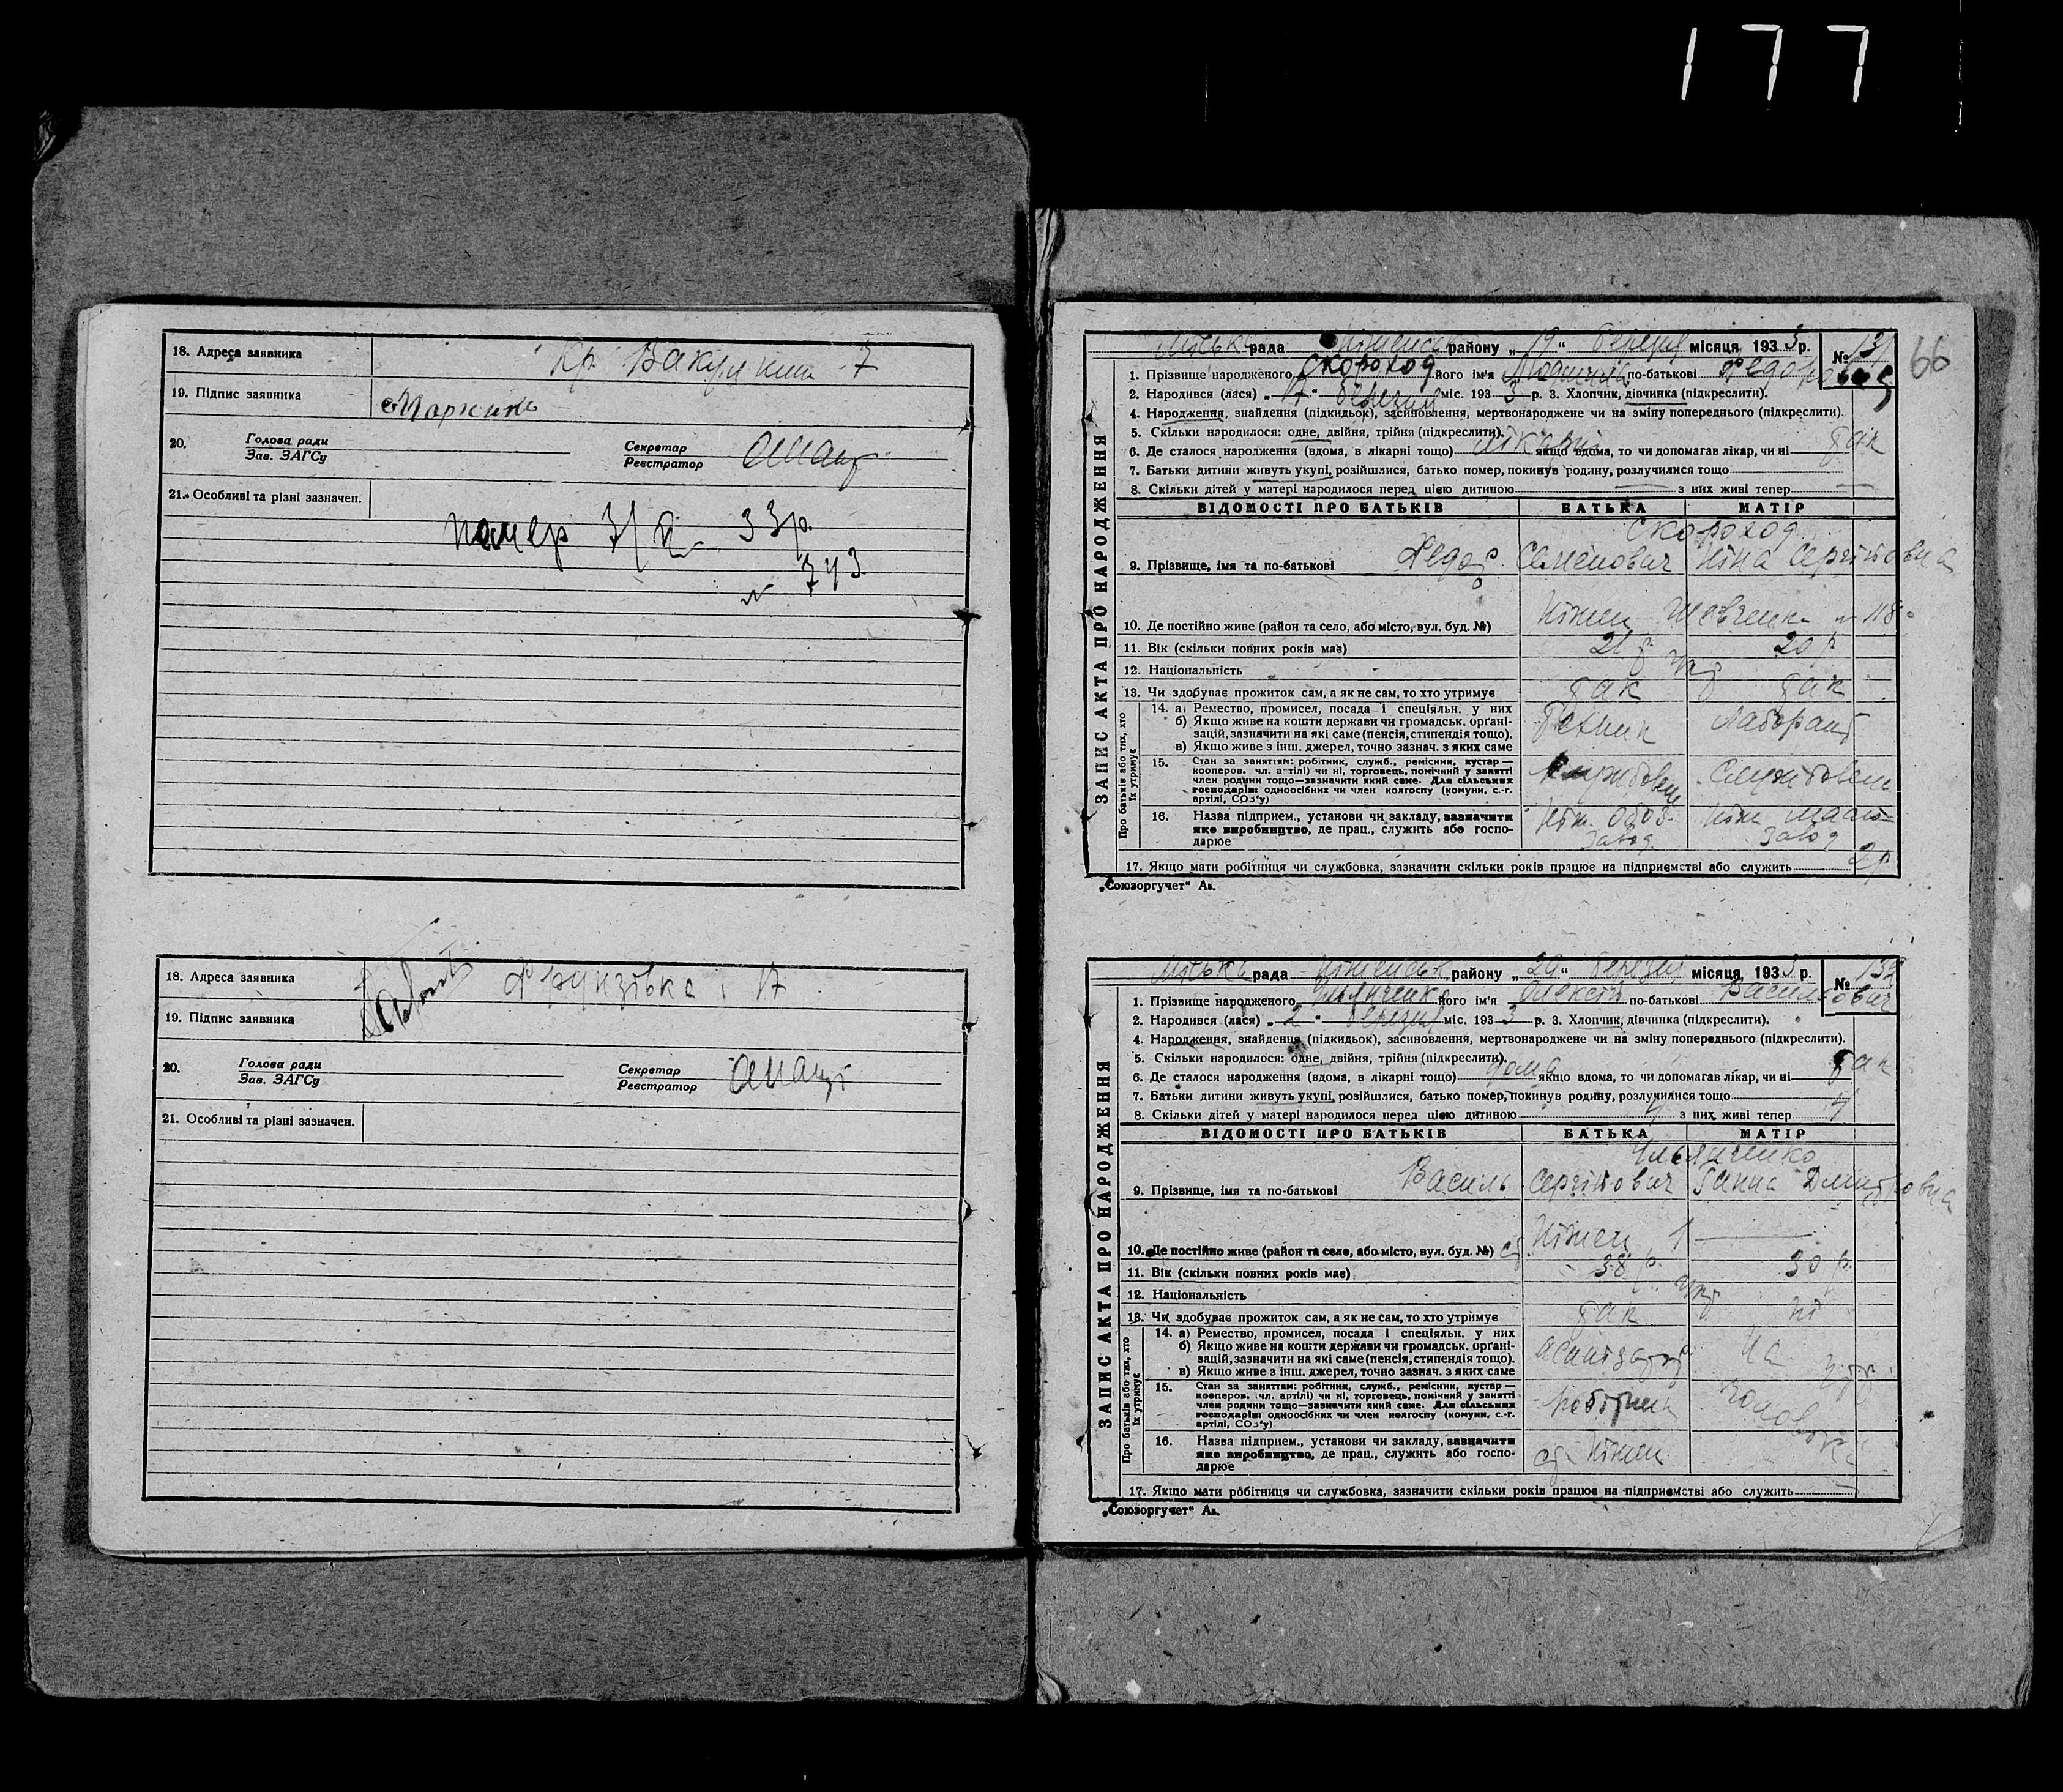 177
18. Адреса заявника Кр. Вакулкиш 7
19. Підпис заявника Маркина
20. Голова ради
Зав. ЗАГСу
Секретар
Реєстратор
21. Особливі та різні зазначен.
помер 33р.
№ 743
18. Адреса заявника Фрунзівка 17
19. Підпис заявника
20. Голова ради
Зав. ЗАГСу
Секретар
Реєстратор
21. Особливі та різні зазначен.
66
ЗАПИС АКТА ПРО НАРОДЖЕННЯ
Міська рада Ніженськ району „19“ березня місяця 1933 р. № 131
1. Прізвище народженого Скороход його ім'я Людмила по-батькові Федоровна
2. Народився (лася) „17“ березня міс. 1933 р. 3. Хлопчик, дівчинка (підкреслити).
4. Народження, знайдення (підкидьок), засиновлення, мертвонароджене чи на зміну попереднього (підкреслити).
5. Скільки народилося: одне, двійня, трійня (підкреслити).
6. Де сталося народження (вдома, в лікарні тощо) лікарня якщо вдома, то чи допомагав лікар, чи ні так
7. Батьки дитини живуть укупі, розійшлися, батько помер, покинув родину, розлучилися тощо
8. Скільки дітей у матері народилося перед цією дитиною — з них живі тепер —
ВІДОМОСТІ ПРО БАТЬКІВ БАТЬКА МАТІР
Скороход
9. Прізвище, імя та по-батькові Федор Семенович Ніна Сергійовна
10. Де постійно живе (район та село, або місто, вул. буд. №) Ніжен Шевченка № 118
11. Вік (скільки повних років має) 21 р 20 р
12. Національність укр
13. Чи здобуває прожиток сам, а як не сам, то хто утримує так так
Про батьків або тих, хто їх утримує
14. а) Ремество, промисел, посада і спеціяльн. у них Технік Лаборант
б) Якщо живе на кошти держави чи громадськ. орґані-
зацій, зазначити на які саме (пенсія, стипендія тощо).
в) Якщо живе з інш. джерел, точно зазнач. з яких саме
15. Стан за заняттям: робітник, служб., ремісник, кустар — службовець Службовець
кооперов. чл. артілі) чи ні, торговець, помічний у занятті
член родини тощо—зазначити який саме. Для сільських
господарів: одноосібних чи член колгоспу (комуни, с.-г.
артілі, СОЗ'у)
16. Назва підприєм., установи чи закладу, зазначити Ніж. обоз. завод Ніж. масло-завод
яке виробництво, де прац., служить або госпо-
дарює
17. Якщо мати робітниця чи службовка, зазначити скільки років працює на підприємстві або служить 2 р
„Союзоргучет“ Ак.
ЗАПИС АКТА ПРО НАРОДЖЕННЯ
Міська рада Ніженськ району „20“ березня місяця 1933 р. № 132
1. Прізвище народженого Ільянченко його ім'я Олексій по-батькові Васильович
2. Народився (лася) „2“ березня міс. 1933 р. 3. Хлопчик, дівчинка (підкреслити).
4. Народження, знайдення (підкидьок), засиновлення, мертвонароджене чи на зміну попереднього (підкреслити).
5. Скільки народилося: одне, двійня, трійня (підкреслити).
6. Де сталося народження (вдома, в лікарні тощо) дома якщо вдома, то чи допомагав лікар, чи ні так
7. Батьки дитини живуть укупі, розійшлися, батько помер, покинув родину, розлучилися тощо
8. Скільки дітей у матері народилося перед цією дитиною 4 з них живі тепер 4
ВІДОМОСТІ ПРО БАТЬКІВ БАТЬКА МАТІР
Ільянченко
9. Прізвище, імя та по-батькові Василь Сергійович Ганна Дмитровна
10. Де постійно живе (район та село, або місто, вул. буд. №) ст. Ніжен 1 —
11. Вік (скільки повних років має) 38 р. 30 р.
12. Національність укр
13. Чи здобуває прожиток сам, а як не сам, то хто утримує так ні
Про батьків або тих, хто їх утримує
14. а) Ремество, промисел, посада і спеціяльн. у них на утр
б) Якщо живе на кошти держави чи громадськ. орґані-
зацій, зазначити на які саме (пенсія, стипендія тощо).
в) Якщо живе з інш. джерел, точно зазнач. з яких саме
15. Стан за заняттям: робітник, служб., ремісник, кустар — робітник чоловіка
кооперов. чл. артілі) чи ні, торговець, помічний у занятті
член родини тощо—зазначити який саме. Для сільських
господарів: одноосібних чи член колгоспу (комуни, с.-г.
артілі, СОЗ'у)
16. Назва підприєм., установи чи закладу, зазначити ст. Ніжен
яке виробництво, де прац., служить або госпо-
дарює
17. Якщо мати робітниця чи службовка, зазначити скільки років працює на підприємстві або служить
„Союзоргучет“ Ак.